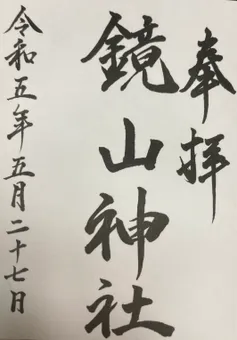 奉拝
鏡山神社
令和五年五月二十七日